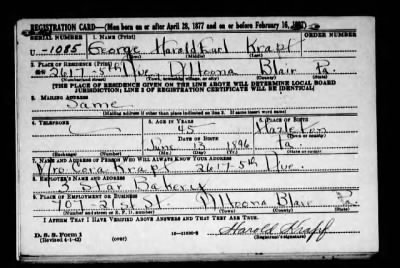 REGISTRATION CARD—(Men born on or after April 28, 1877 and on or before February 16, 1897)
SERIAL NUMBER 1. NAME (Print) ORDER NUMBER
U-1085 George Harold Earl Krapf
(First) (Middle) (Last)
2. PLACE OF RESIDENCE (Print)
2617-5th Ave Altoona Blair Pa.
(Number and street) (Town, township, village, or city) (County) (State)
[THE PLACE OF RESIDENCE GIVEN ON THE LINE ABOVE WILL DETERMINE LOCAL BOARD
JURISDICTION; LINE 2 OF REGISTRATION CERTIFICATE WILL BE IDENTICAL]
3. MAILING ADDRESS
Same
(Mailing address if other than place indicated on line 2. If same insert word same)
4. TELEPHONE 5. AGE IN YEARS 6. PLACE OF BIRTH
45 Hazleton
DATE OF BIRTH (Town or county)
June 13 1896 Pa.
(Exchange) (Number) (Mo.) (Day) (Yr.) (State or country)
7. NAME AND ADDRESS OF PERSON WHO WILL ALWAYS KNOW YOUR ADDRESS
Mrs Cora Krapf 2617-5th Ave.
8. EMPLOYER'S NAME AND ADDRESS
3 Star Bakery
9. PLACE OF EMPLOYMENT OR BUSINESS
21st St. Altoona Blair Pa.
(Number and street or R. F. D. number) (Town) (County) (State)
I AFFIRM THAT I HAVE VERIFIED ABOVE ANSWERS AND THAT THEY ARE TRUE.
D. S. S. Form 1
(Revised 4-1-42) (over) Harold Krapf
(Registrant's signature)